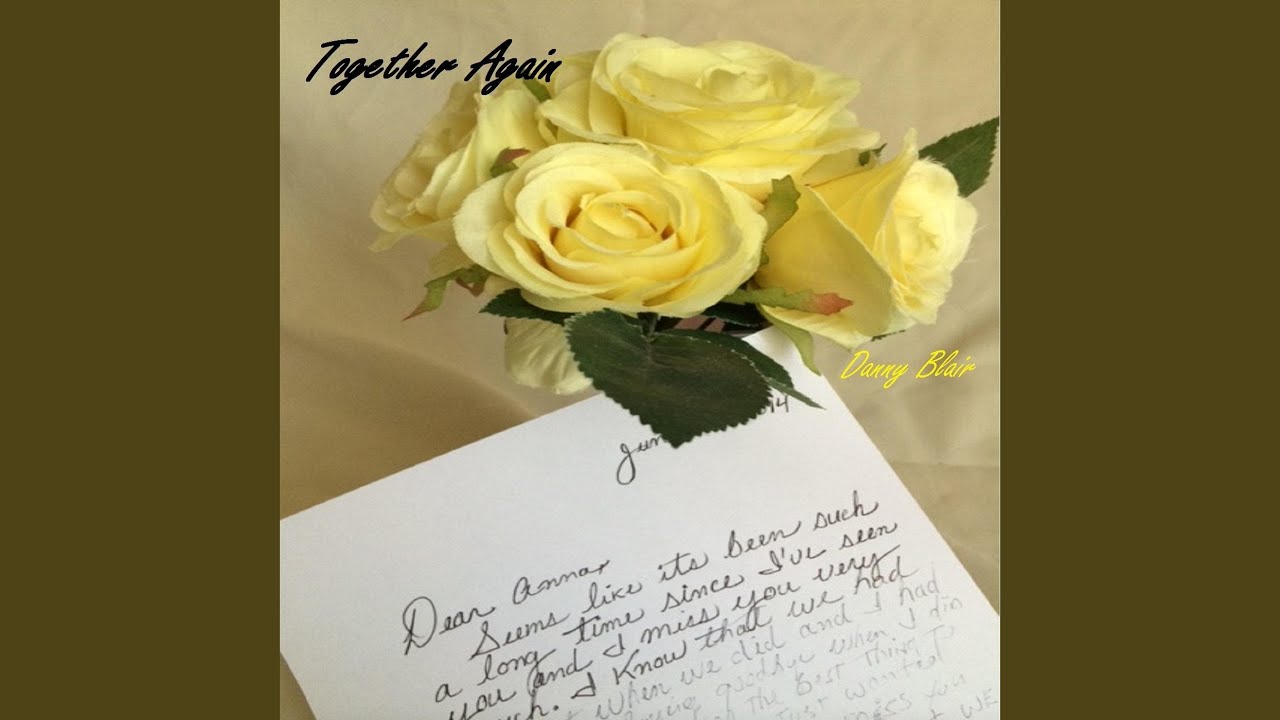 Together Again
Danny Blair
Jun 14
Dear Anna,
Seems like its been such
a long time since I've seen
you and I miss you very
I know that we had
when we did and I had
goodbye when I
the best thing to
just wanted
miss you
WE